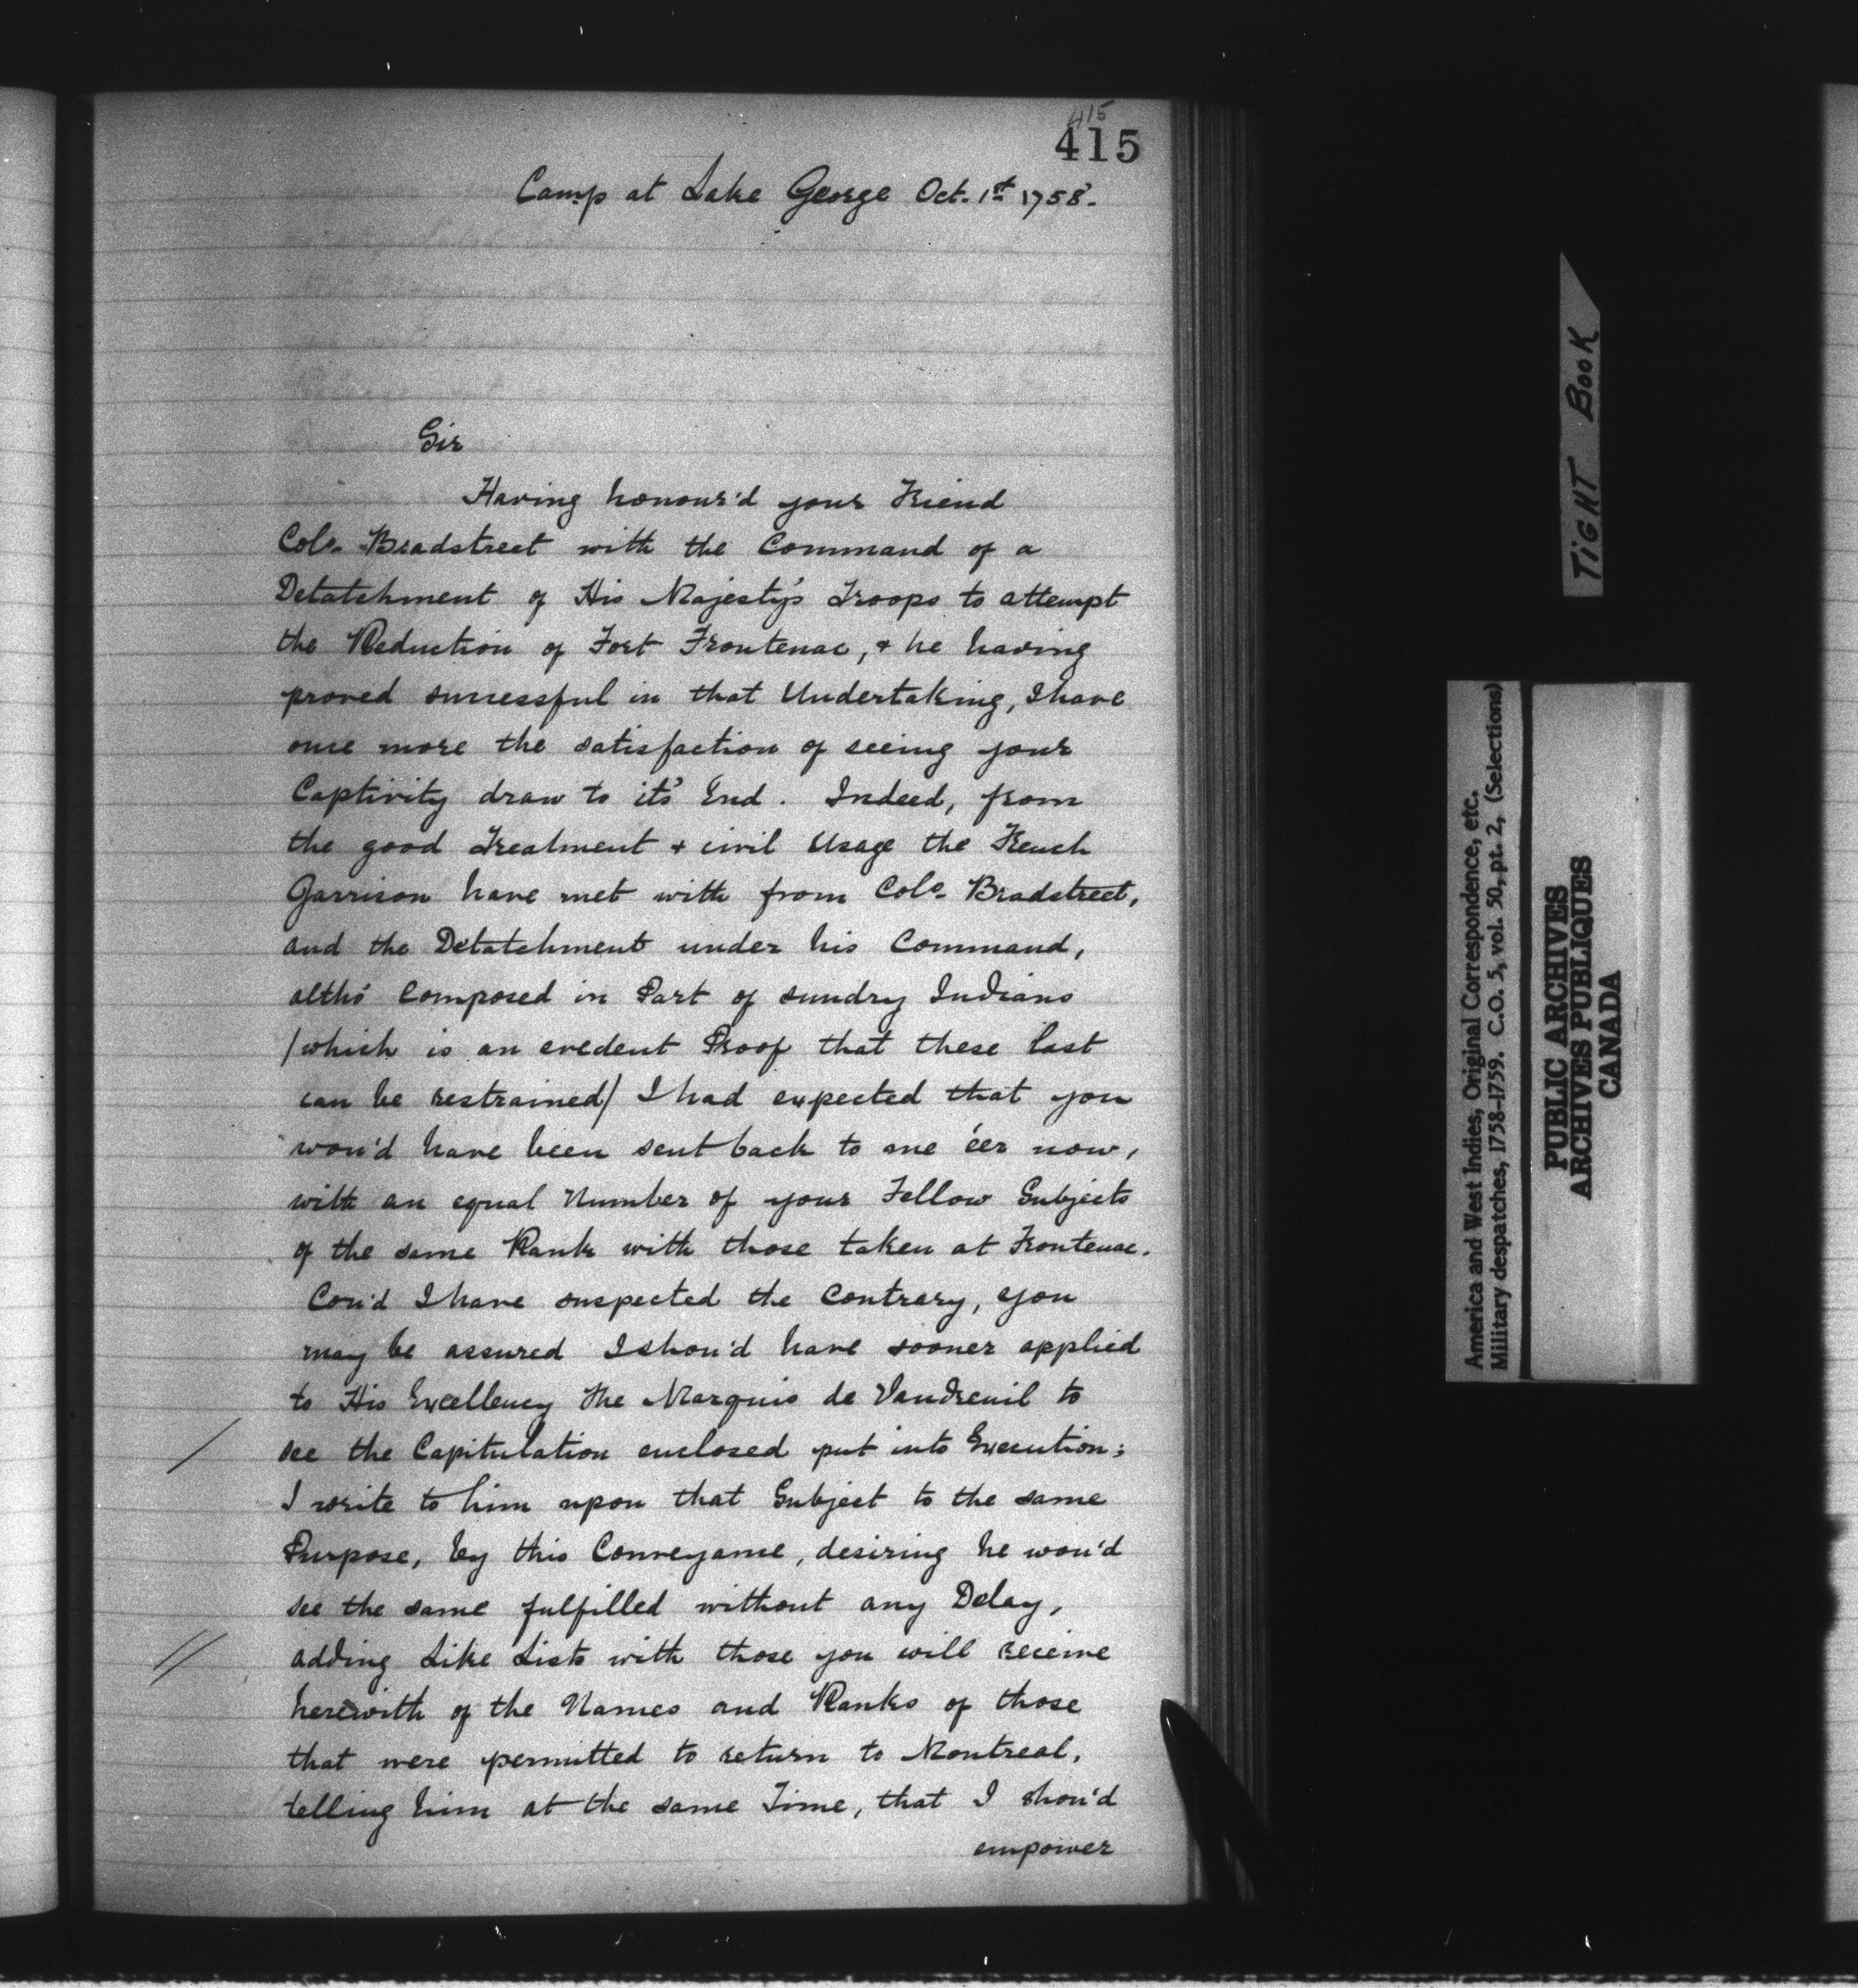 415
415
Camp at Lake George Oct. 1st 1758.
Sir
Having honour'd your Friend
Colo. Bradstreet with the Command of a
Detatchment of His Majesty's Troops to attempt
the Reduction of Fort Frontenac, + he having
proved successful in that Undertaking, I have
once more the satisfaction of seeing your
Captivity draw to it's End. Indeed, from
the good Treatment + civil Usage the French
Garrison have met with from Colo. Bradstreet,
and the Detatchment under his Command,
altho' Composed in Part of sundry Indians
/which is an evedent Proof that these last
can be restrained/ I had expected that you
wou'd have been sent back to me e'er now,
with an equal Number of your Fellow Subjects
of the same Rank with those taken at Frontenac.
Cou'd I have suspected the Contrary, you
may be assured I shou'd have sooner applied
to His Excellency the Marquis de Vaudreuil to
see the Capitulation enclosed put into Execution;
I write to him upon that Subject to the same
Purpose, by this Conveyance, desiring he wou'd
see the same fulfilled without any Delay,
adding Like Lists with those you will receive
herewith of the Names and Ranks of those
that were permitted to return to Montreal,
telling him at the same Time, that I shou'd
empower
TIGHT BOOK
America and West Indies, Original Correspondence, etc.
Military despatches, 1758-1759. C.O. 5, vol. 50, pt. 2, (Selections)
PUBLIC ARCHIVES
ARCHIVES PUBLIQUES
CANADA